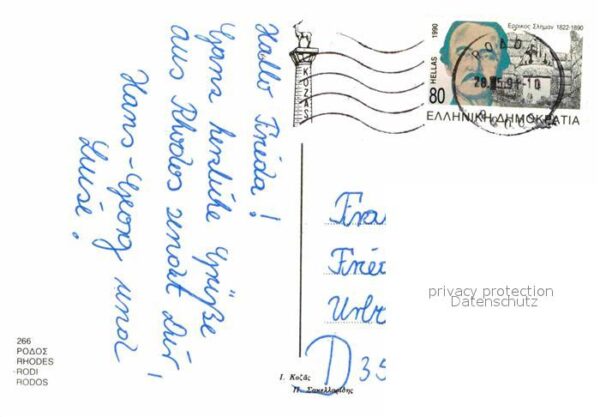 Hallo Frieda!
Ganz herzliche Grüße
aus Rhodos sendet Dir
Hans-Georg und
Luise!
ΚΟΖΑΣ
Ερρίκος Σλήμαν 1822-1890
1990
HELLAS
80
ΕΛΛΗΝΙΚΗ ΔΗΜΟΚΡΑΤΙΑ
ΡΟΔΟΣ
28.05.91-10
Fra
Frie
Urb
D 35
privacy protection
Datenschutz
266
ΡΟΔΟΣ
RHODES
RODI
RODOS
Ι. Κοζᾶς
Π. Σακελλαρίδης